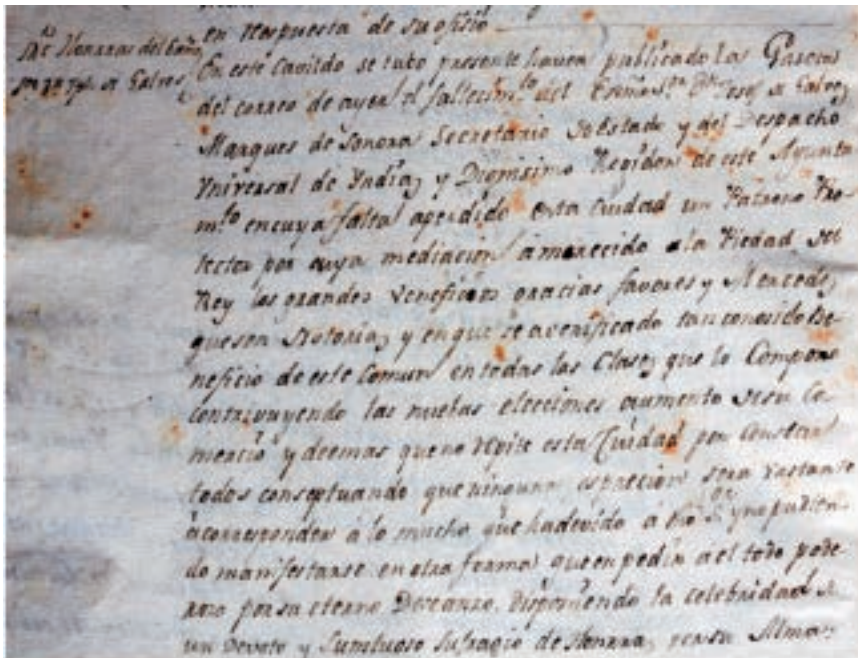 en respuesta de su ofiçio
Sre Honrras del Exmo
Sor Dn Jph de Galvez
En este Cavildo se tubo presente haver publicado las Gacetas
del correo de ayer el fallecimto del Exmo Sor Dn Josef de Galvez
Marques de Sonora Secretario de Estado y del Despacho
Vniversal de Yndias y Dignisimo Regidor de este Ayunta
mto en cuya falta a perdido esta Ciudad un Patrono Pro
tector por cuya mediacion a merecido a la Piedad del
Rey los grandes veneficios gracias favores y Mercedes
que son Notorias y en que se a verificado tan conosido be
neficio de este Comun en todas las Clases que lo Compone
contrivuyendo las nuebas elecciones aumento de su Co
mercio y demas que no repite esta Ciudad por constar a
todos conseptuando que ninguna espresion sera vastante
a corresponder à lo mucho que ha devido à dho Sor y no pudien
do manifestarse en otra forma que en pedir a el todo pode
roso por su eterno Descanzo. Disponiendo la celebridad de
un Devoto y Sumtuoso Sufragio de Honrras por su Alma